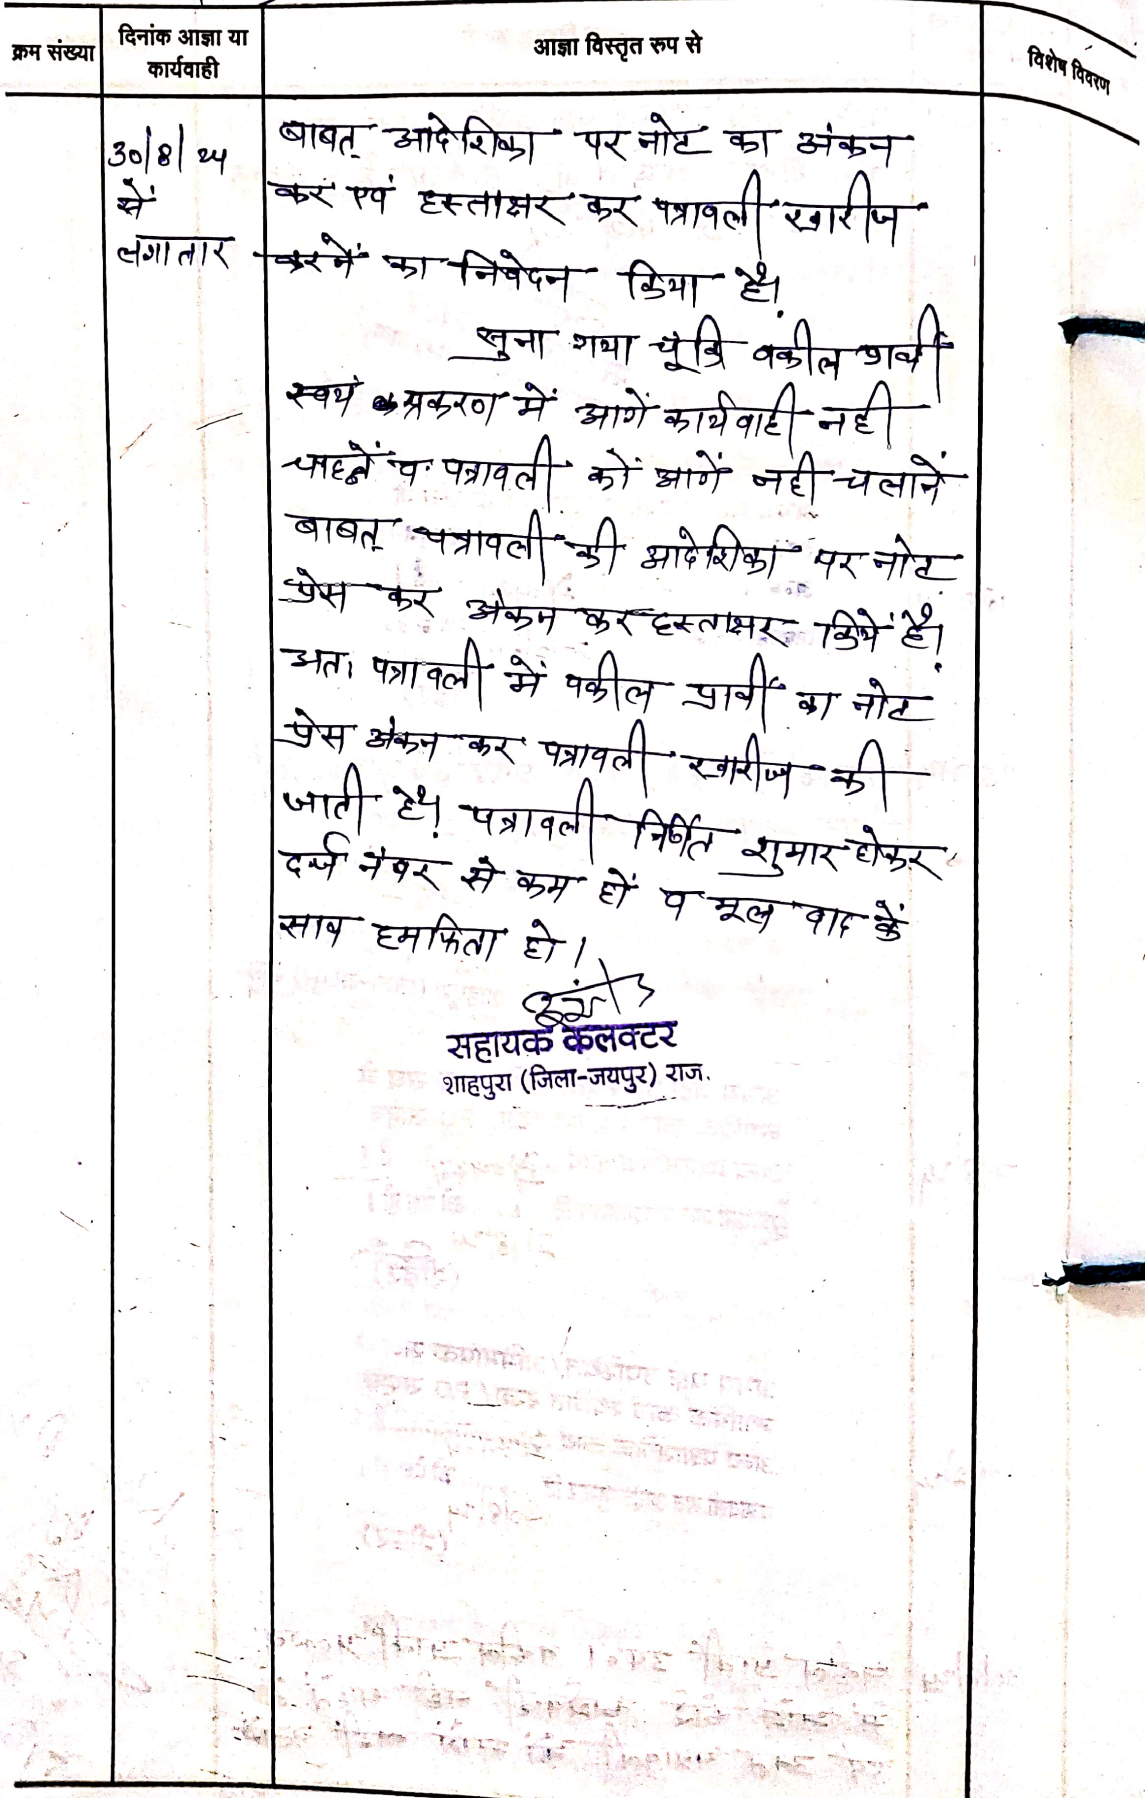 क्रम संख्या
दिनांक आज्ञा या
कार्यवाही
आज्ञा विस्तृत रुप से
विशेष विवरण
30/8/24
सें
लगातार
बाबत् आदेशिका पर नोट का अंकन
कर एवं हस्ताक्षर कर पत्रावली खारीज
करनें का निवेदन किया है।
सुना गया चूंकि वकील प्रार्थी
स्वयं प्रकरण में आगें कार्यवाही नही
चाहतें व पत्रावली कों आगें नही चलानें
बाबत् पत्रावली की आदेशिका पर नोट
प्रेस कर अंकन कर हस्ताक्षर कियें है।
अतः पत्रावली में वकील प्रार्थी का नोट
प्रेस अंकन कर पत्रावली खारीज की
जाती है। पत्रावली निर्णित शुमार होकर
दर्ज नंबर से कम हों व मूल वाद कें
साथ हमफिता हो।
सहायक कलक्टर
शाहपुरा (जिला-जयपुर) राज.